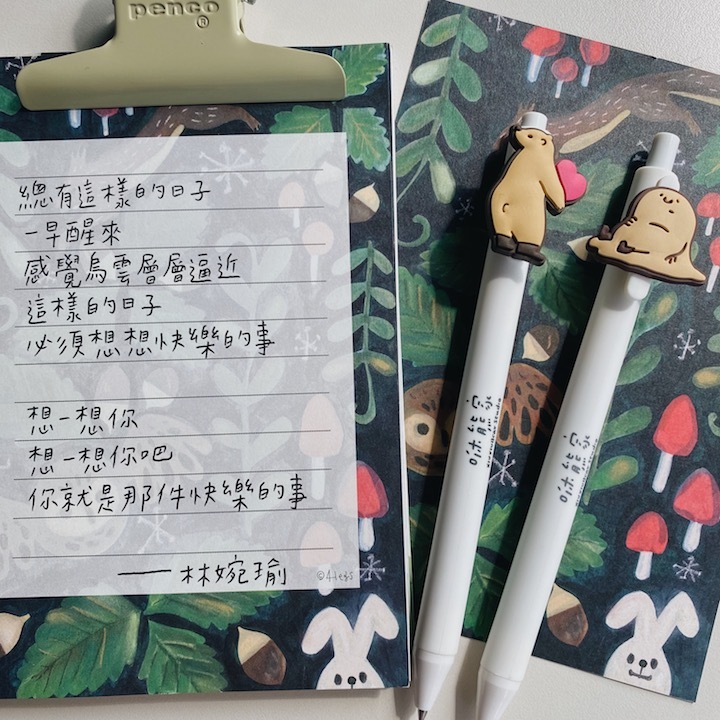 penco®
總有這樣的日子
一早醒來
感覺烏雲層層逼近
這樣的日子
必須想想快樂的事
想一想你
想一想你吧
你就是那件快樂的事
——林婉瑜